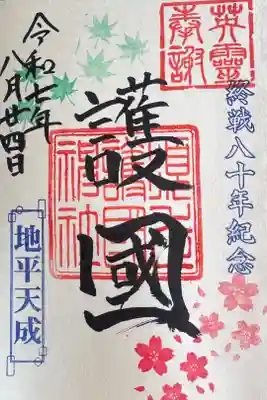 英靈
奉謝
終戦八十年紀念
護國
令和七年
八月廿四日
地平天成